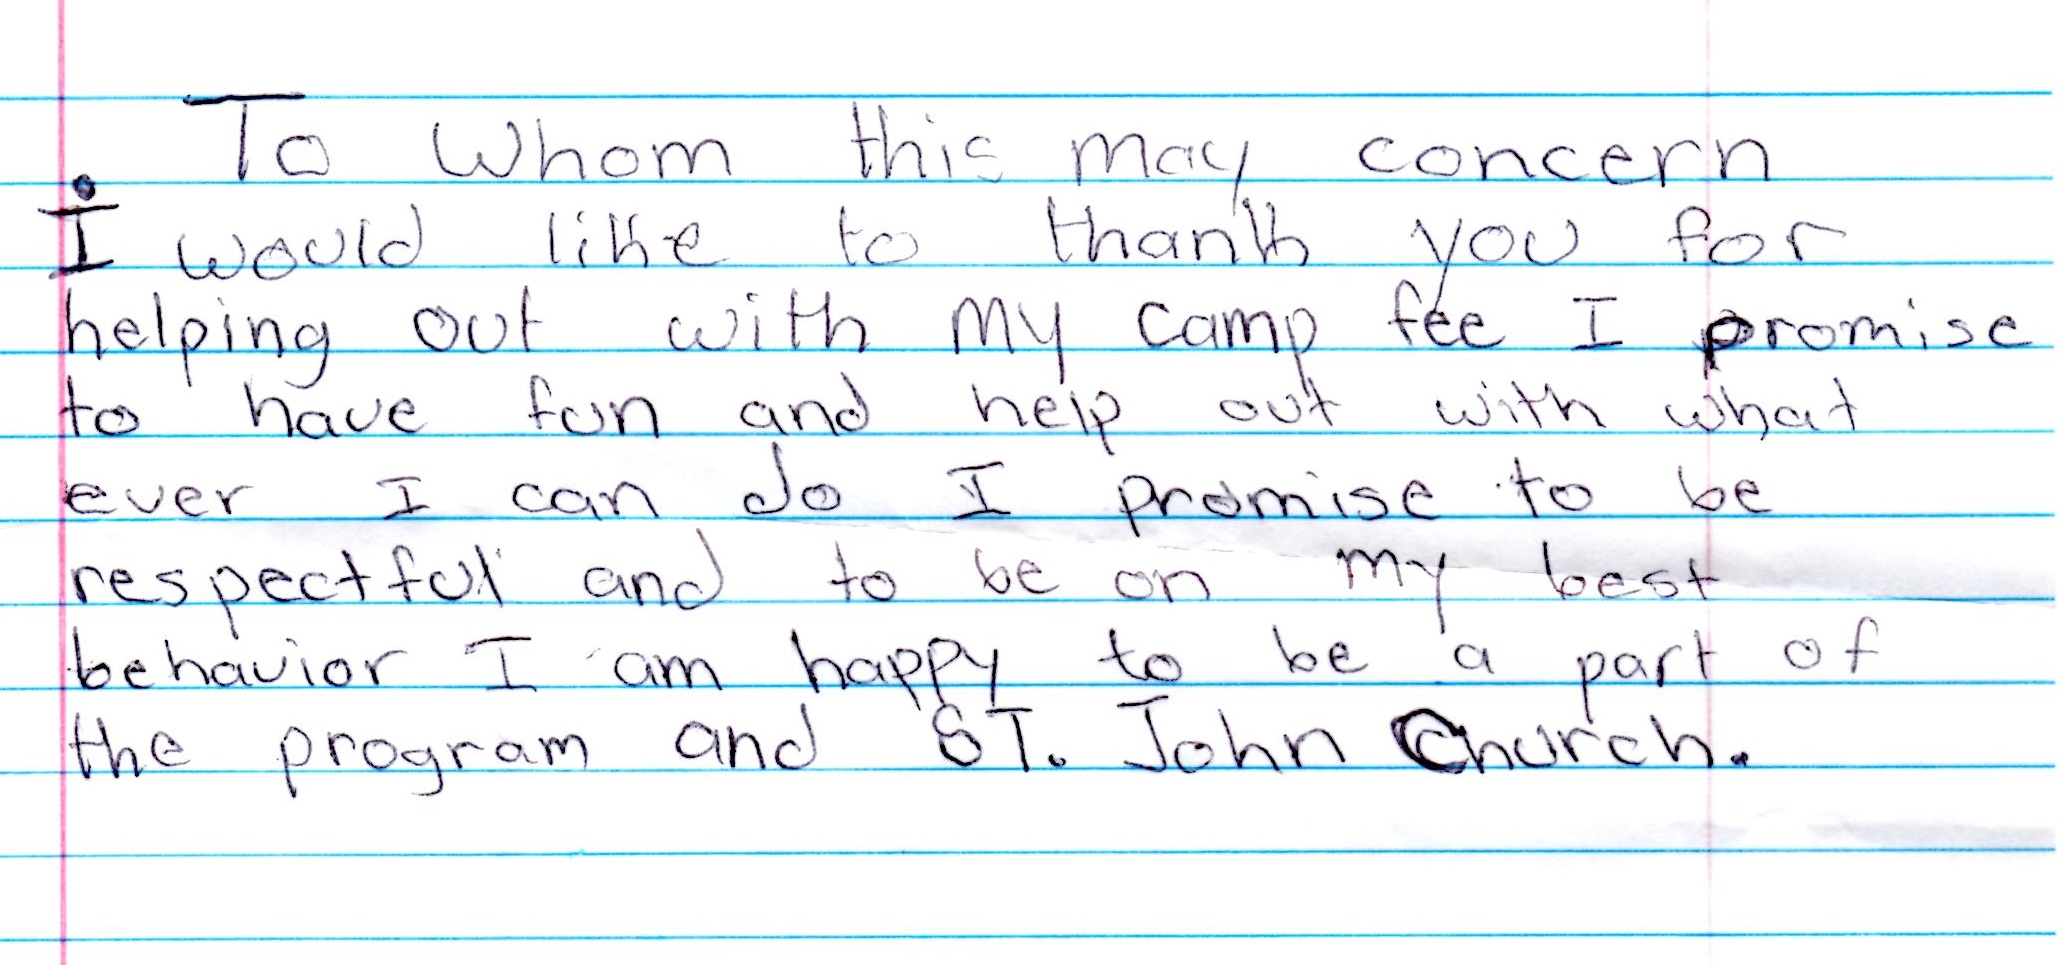 To Whom this may concern
I would like to thank you for
helping out with my camp fee I promise
to have fun and help out with what
ever I can do I promise to be
respectful and to be on my best
behavior I am happy to be a part of
the program and ST. John Church.